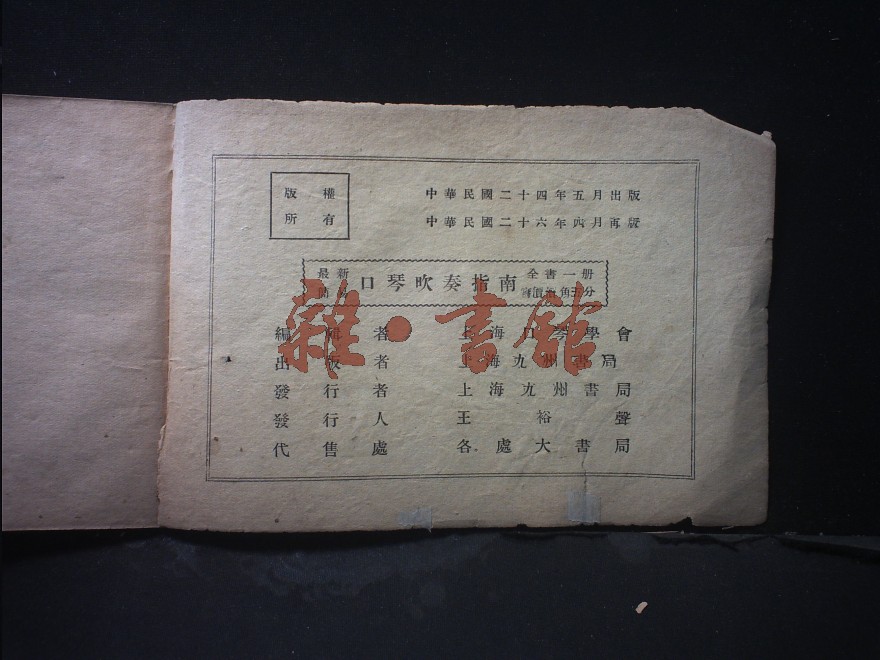 版權
所有
中華民國二十四年五月出版
中華民國二十六年四月再版
最新
口琴吹奏指南
全書一册
實價 角五分
編 者 上海口琴學會
出版者 上海九州書局
發行者 上海九州書局
發行人 王裕聲
代售處 各處大書局
雜·書館